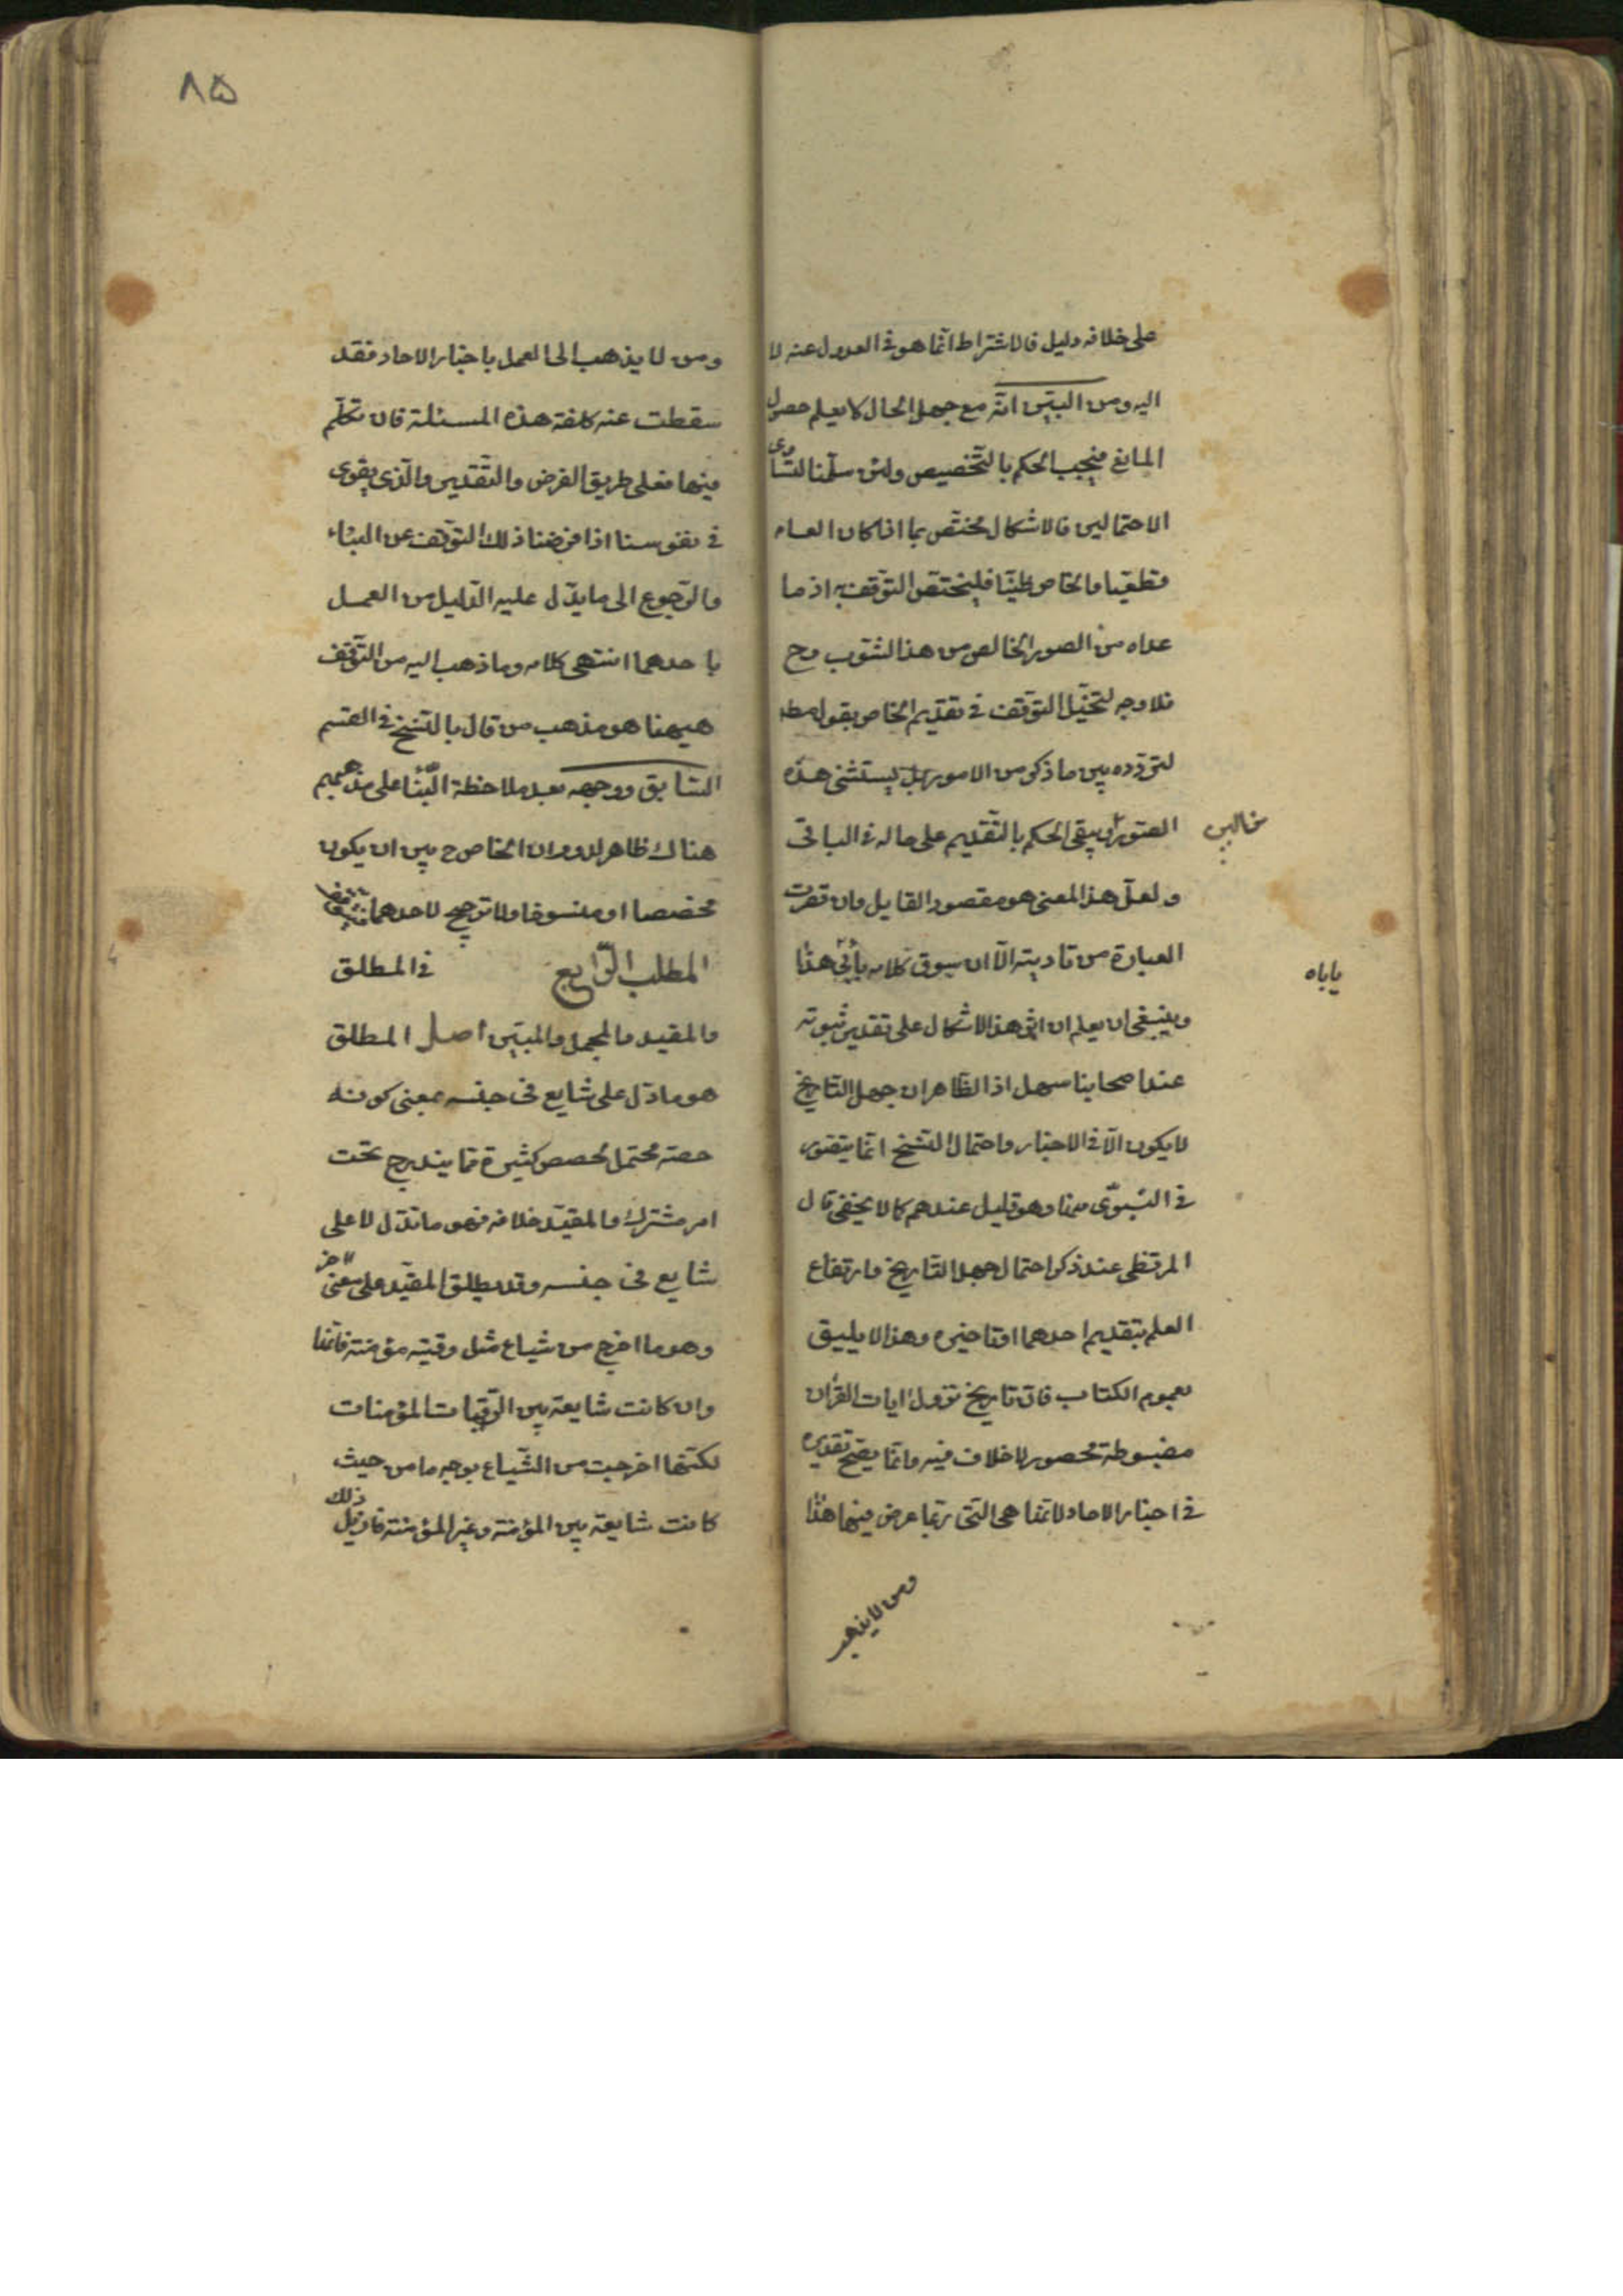 على خلافه دليل فالاشتراط انما هو في العدول عنه لا
اليه ومن البين انه مع جهل الحال لا يعلم حصول
المانع فيجب الحكم بالتخصيص ولئن سلمنا لتساوى
الاحتمالين فالاشكال مختص بما اذا كان العام
قطعيا والخاص ظنيا فليختص التوقف به اذ ما
عداه من الصور الخالص من هذا الشوب وح
فلا وجه لتخيل التوقف في تقديم الخاص بقول مطلق
لتردده بين ما ذكر من الامور بل يستثنى هذه
الصورة ويبقى الحكم بالتقديم على حاله في الباقي
خالين
ولعل هذا المعنى هو مقصود القايل وان قصرت
العبارة من تاديته الا ان سوق كلامه يأبى هذا
ياباه
وينبغي ان يعلم ان اثر هذا الاشكال على تقدير ثبوته
عند اصحابنا سهل اذ الظاهر ان جهل التاريخ
لا يكون الا في الاخبار واحتمال النسخ انما يتصور
في النبوي منها وهو قليل عندهم كما لا يخفى قال
المرتضى عند ذكر احتمال جهل التاريخ وارتفاع
العلم بتقديم احدهما او تاخيره وهذا لا يليق
بعموم الكتاب فان تاريخ نزول ايات القرآن
مضبوطة محصور لا خلاف فيه وانما يصح تقديره
في اخبار الاحاد لانها هي التي ربما عرض فيها هذا
ومن لا يذهب
٨۵
ومن لا يذهب الى العمل باخبار الاحاد فقد
سقطت عنه كلفة هذه المسئلة فان تكلم
فيها فعلى طريق الفرض والتقدير والذي يقوى
في نفوسنا اذا فرضنا ذلك التوقف عن البناء
والرجوع الى ما يدل عليه الدليل من العمل
باحدهما انتهى كلامه وما ذهب اليه من التوقف
هيهنا هو مذهب من قال بالنسخ في القسم
السابق ووجهه بعد ملاحظة البناء على مذهبهم
هناك ظاهر لدوران الخاص ح بين ان يكون
مخصصا او منسوخا ولا ترجيح لاحدهما فيتوقف
المطلب الرابع في المطلق
والمقيد والمجمل والمبين اصل المطلق
هو ما دل على شايع في جنسه بمعنى كونه
حصة محتمل لحصص كثيرة مما يندرج تحت
امر مشترك والمقيد خلافه فهو ما يدل لا على
شايع في جنسه وقد يطلق المقيد على معنى آخر
وهو ما اخرج من شياع مثل رقبة مؤمنة فانها
وان كانت شايعة بين الرقبات المؤمنات
لكنها اخرجت من الشياع بوجه ما من حيث
كانت شايعة بين المؤمنة وغير المؤمنة فازيل ذلك